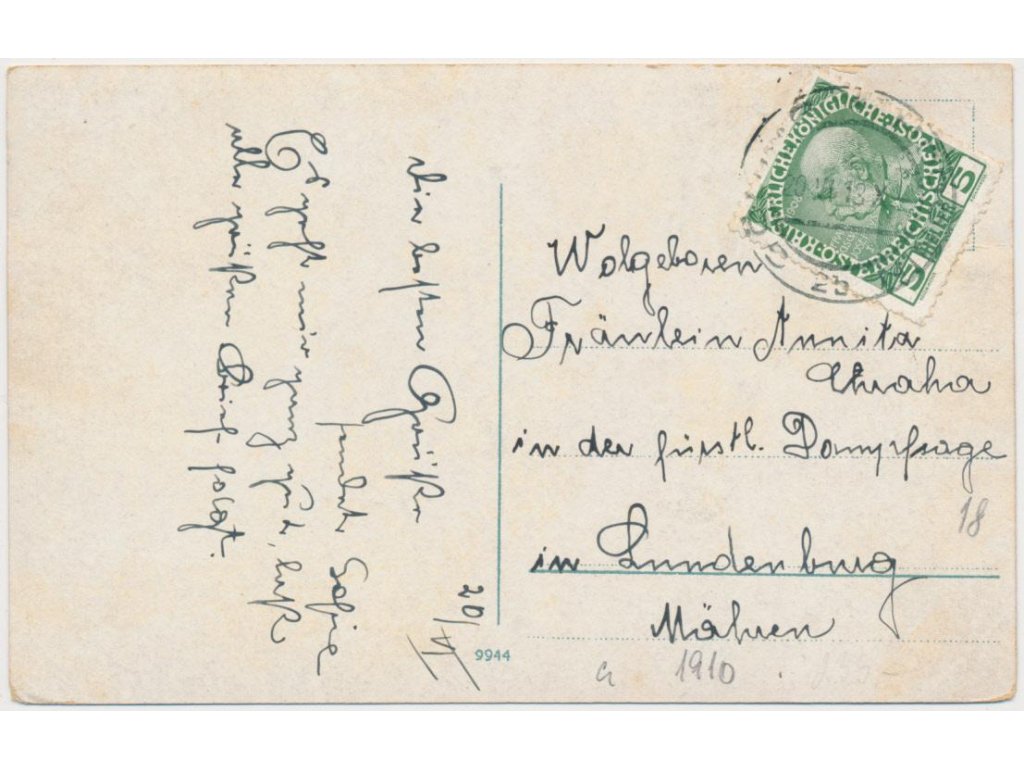 Die besten Grüße
sendet Sofie
Es geht mir ganz gut, laß
alle grüßen Brief folgt.
20/VI
9944
KAISERLICHE KÖNIGLICHE ÖSTERREICHISCHE POST
5 HELLER 5
2b
Wolgeboren
Fräulein Annita
in der fürstl. Dampfsage
in Lundenburg
Mähren
18
1910